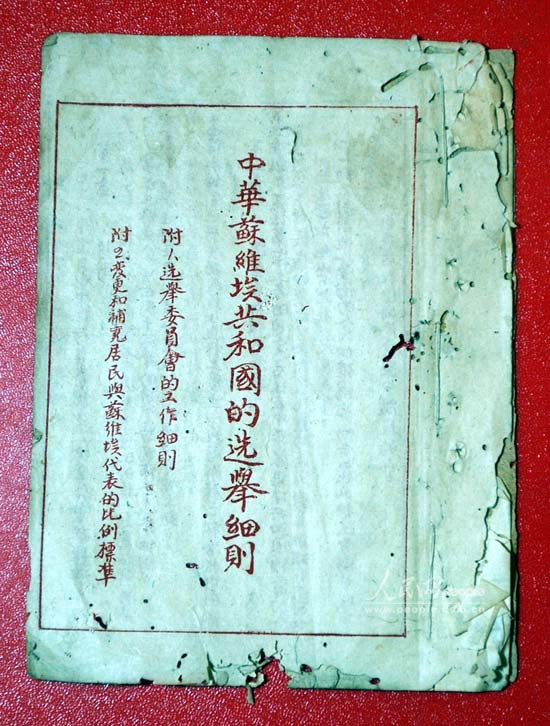 中華蘇維埃共和國的选举细則
附1选举委員會的工作细則
附2变更和補充居民與蘇维埃代表的比例標準
人民网 people
www.people.com.cn